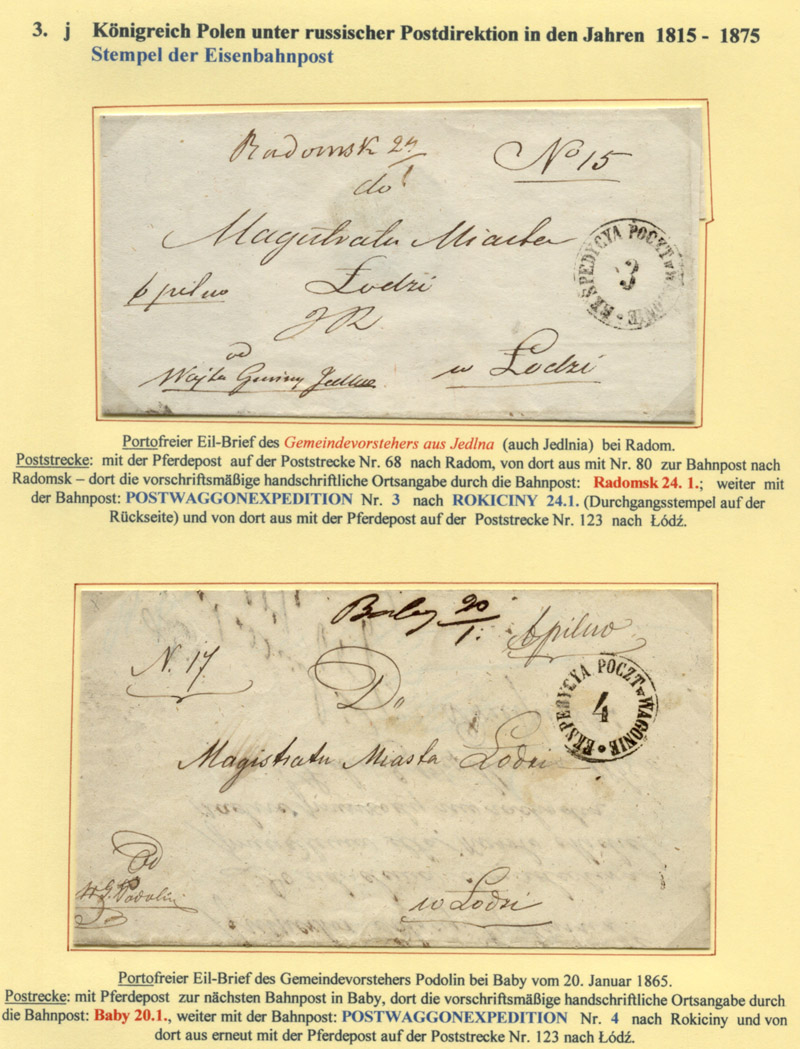 3. j Königreich Polen unter russischer Postdirektion in den Jahren 1815 - 1875
Stempel der Eisenbahnpost
Radomsk 24/1
do
No 15
Magistratu Miasta
Łodzi
pilno
EKSPEDYCYA POCZT w WAGONIE
3
od
Wójta Gminy Jedlna
w Łodzi
Portofreier Eil-Brief des Gemeindevorstehers aus Jedlna (auch Jedlnia) bei Radom.
Poststrecke: mit der Pferdepost auf der Poststrecke Nr. 68 nach Radom, von dort aus mit Nr. 80 zur Bahnpost nach
Radomsk – dort die vorschriftsmäßige handschriftliche Ortsangabe durch die Bahnpost: Radomsk 24. 1.; weiter mit
der Bahnpost: POSTWAGGONEXPEDITION Nr. 3 nach ROKICINY 24.1. (Durchgangsstempel auf der
Rückseite) und von dort aus mit der Pferdepost auf der Poststrecke Nr. 123 nach Łódź.
Baby 20/1.
pilno
N. 17
Do
EKSPEDYCYA POCZT w WAGONIE
4
Magistratu Miasta Lodzi
Od
W. G. Podolin
w Lodzi
Portofreier Eil-Brief des Gemeindevorstehers Podolin bei Baby vom 20. Januar 1865.
Postrecke: mit Pferdepost zur nächsten Bahnpost in Baby, dort die vorschriftsmäßige handschriftliche Ortsangabe durch
die Bahnpost: Baby 20.1., weiter mit der Bahnpost: POSTWAGGONEXPEDITION Nr. 4 nach Rokiciny und von
dort aus erneut mit der Pferdepost auf der Poststrecke Nr. 123 nach Łódź.